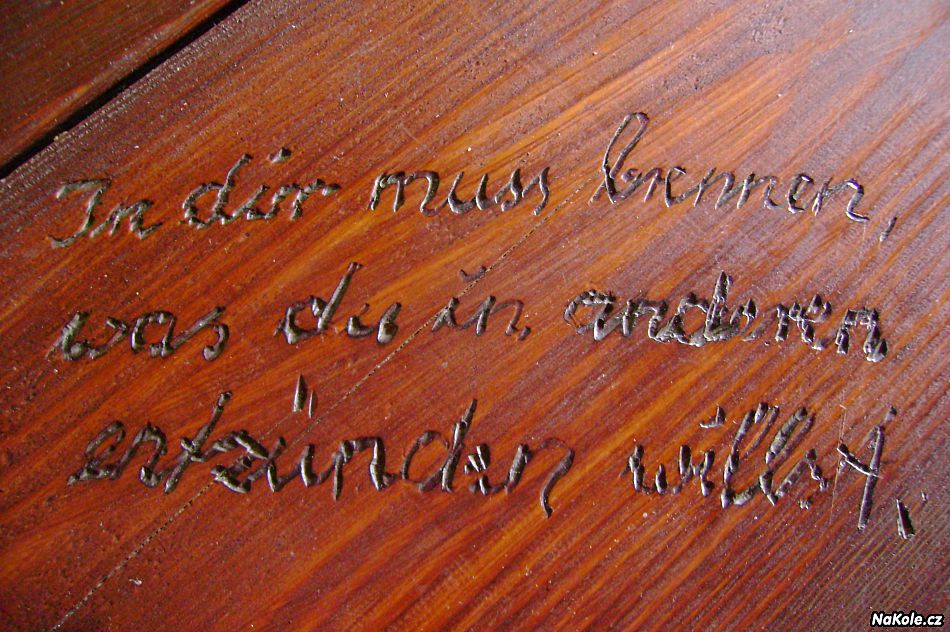 In dir muss brennen,
was du in anderen
entzünden willst.
NaKole.cz